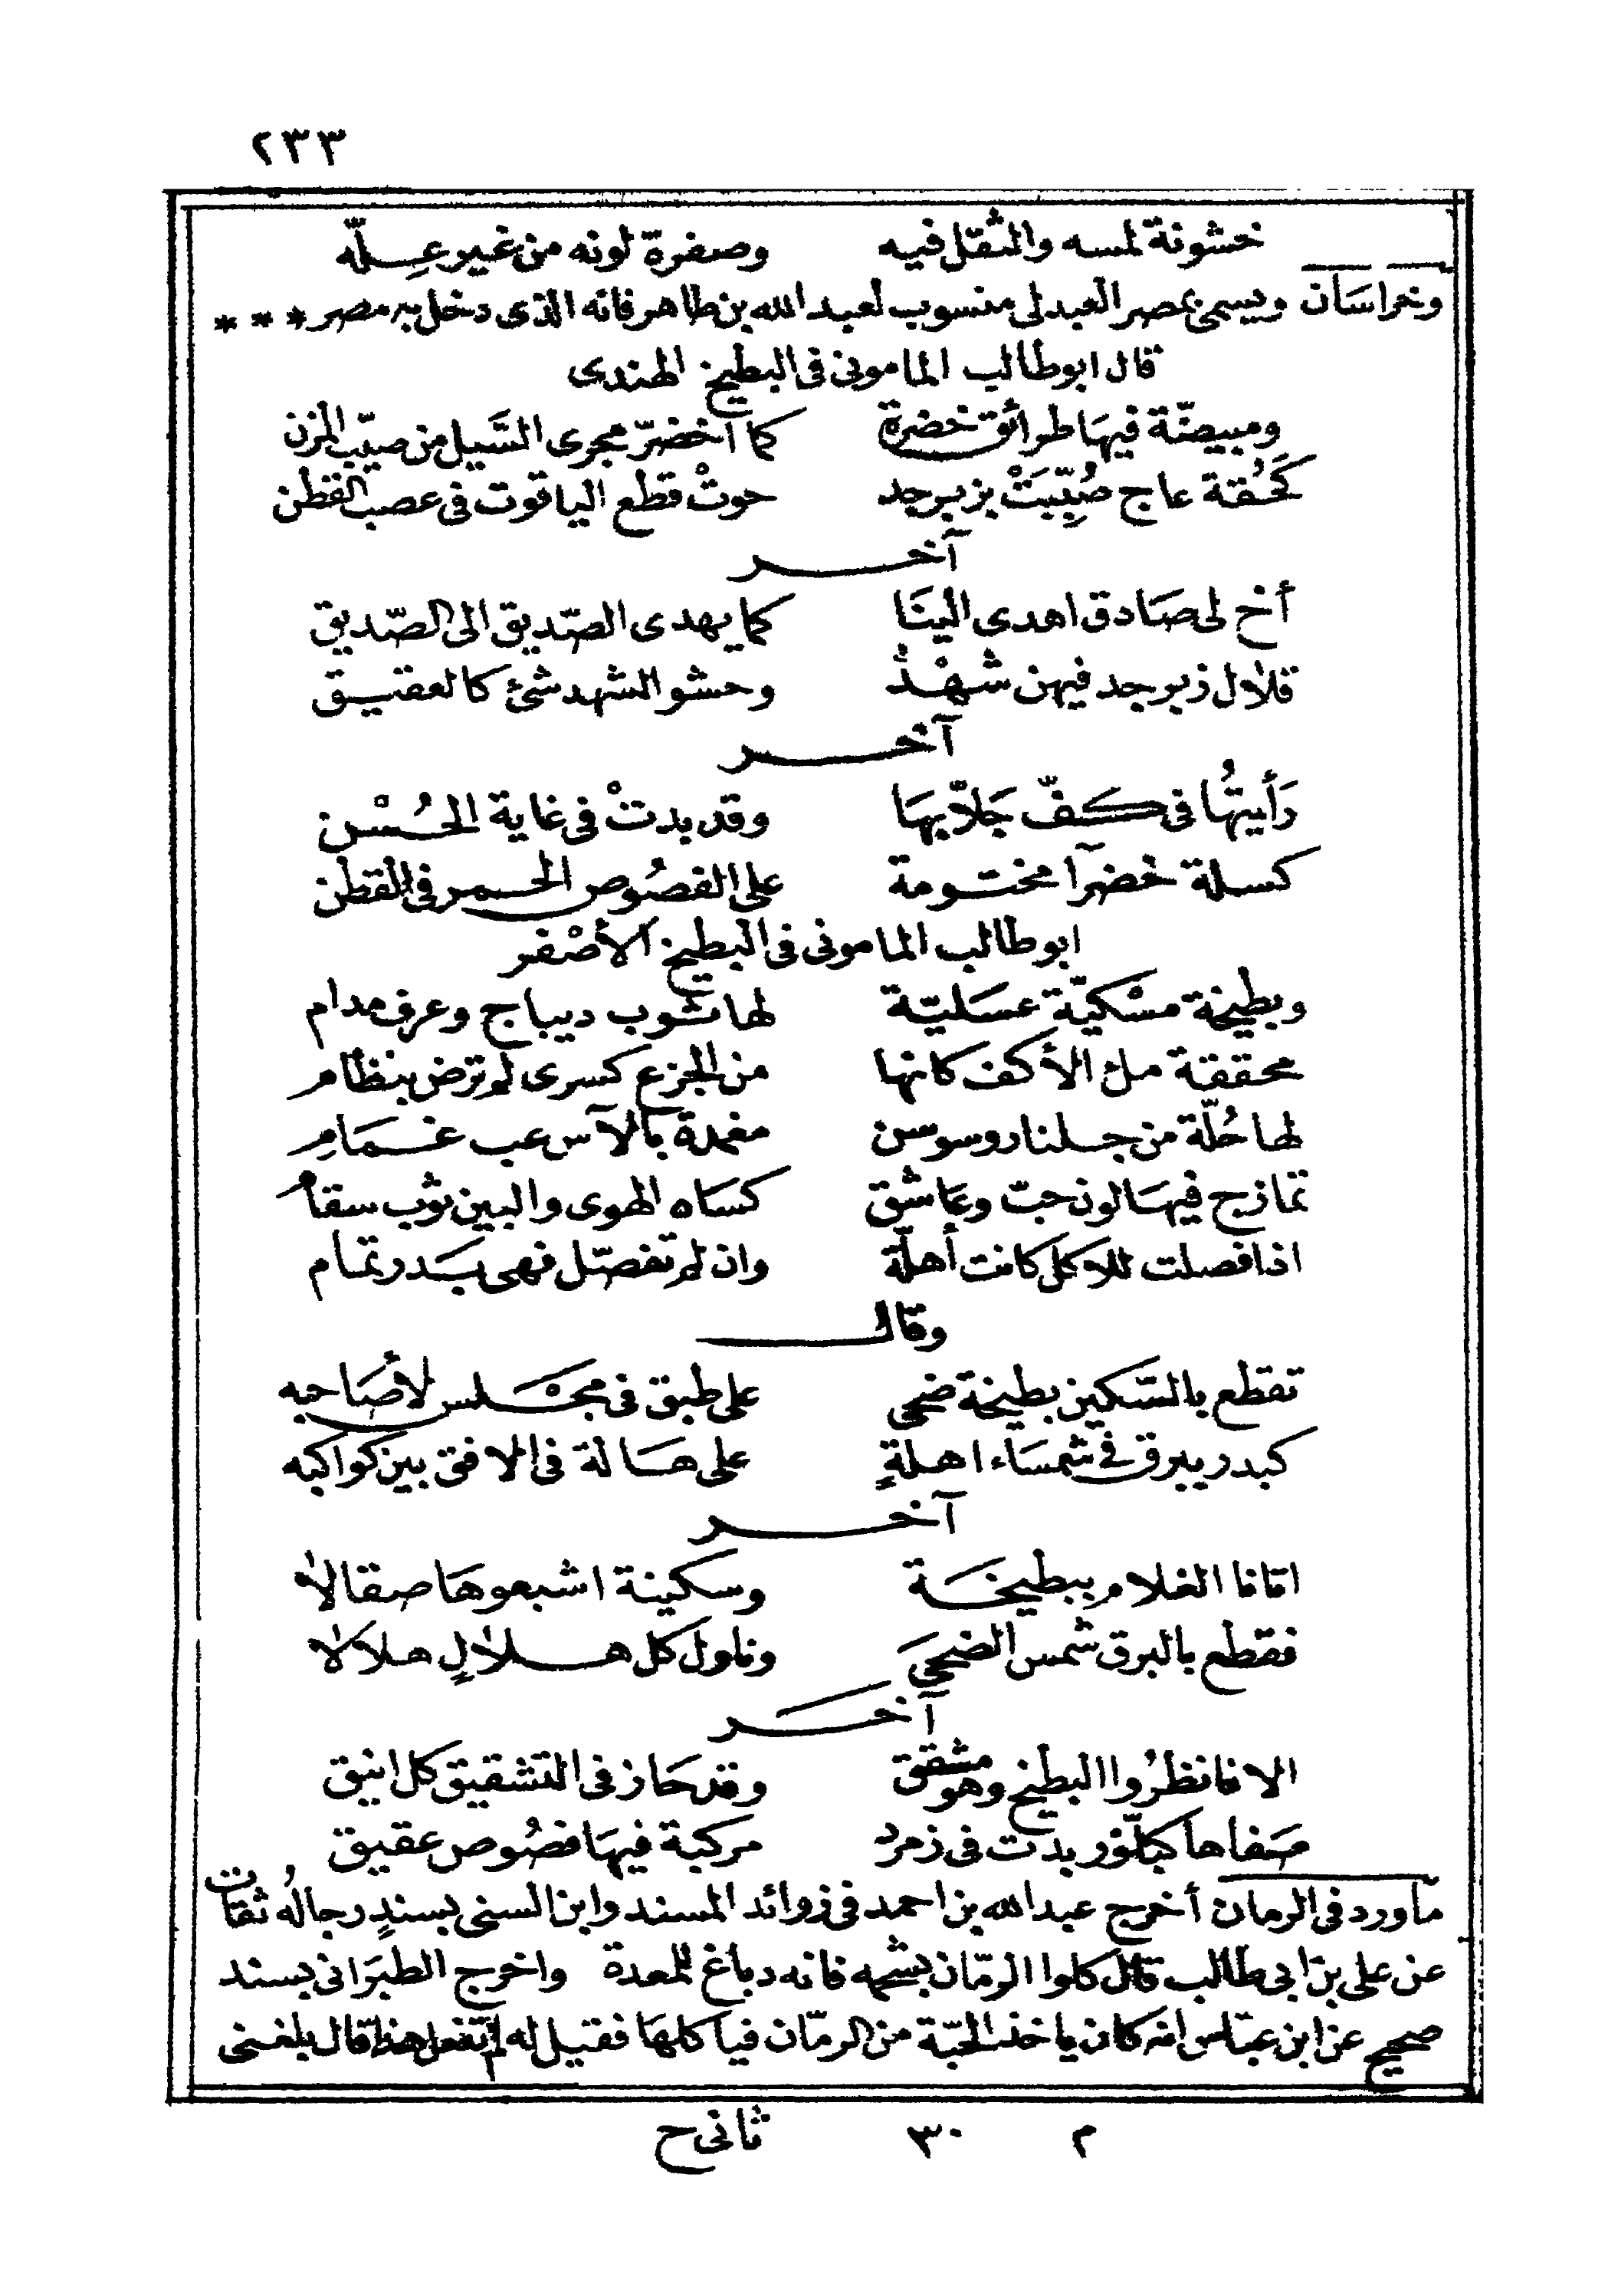 ٢٣٣
خشونة لمسه والثقل فيه وصفرة لونه من غير عِلّه
وخراسان ويسمى بمصر العبدلى منسوب لعبد الله بن طاهر فانه الذى دخل به مصر * * *
قال ابو طالب المامونى فى البطيخ الهندى
ومبيضّة فيها طرائق خضرة كما اخضرّ مجرى السَّيل من صيّب المزن
كَحُقة عاج ضُبِّبَتْ بزبرجد حوتْ قطع الياقوت فى عصب القطن
آخر
أخ لى صادق اهدى الينا كما يهدى الصّديق الى الصّديق
قلال زبرجد فيهن شهْدٌ وحشو الشهد شئ كالعقيق
آخر
رأيتُها فى كفّ جَلاّبها وقد بدتْ فى غاية الحُسْن
كسلة خضرآ مختومة على الفصُوص الحمر فى القطن
ابو طالب المامونى فى البطيخ الأصْفر
وبطيخة مسْكيّة عسَليّة لها ثوب ديباج وعرف مدام
محققة ملئ الأكف كانها من الجزع كسرى لم ترض بنظام
لها حُلّة من جلنار وسوسن مغمدة بالآس عب غمام
تمازج فيها لون حبّ وعاشق كساه الهوى والبين ثوب سقام
اذا فصلت للاكل كانت أهلّة وان لم تفصّل فهى بَدر تمام
وقال
تقطع بالسّكين بطيخة ضحى على طبق فى مجْلس لأصَاحبه
كبدر ببرق فى شمسَاء اهلةٍ على هالة فى الافق بين كواكبه
آخر
اتانا الغلام ببطيخة وسكينة اشبعوها صقالا
فقطع بالبرق شمس الضحى وناول كل هلالٍ هلالا
آخر
الا فانظرُوا البطيخ وهو مشقق وقد حاز فى التشقيق كل انيق
صَفاها كبلّور بدت فى زمرد مركبة فيها فصُوص عقيق
ما ورد فى الرمان أخرج عبد الله بن احمد فى زوائد المسند وابن السنى بسندٍ رجالُه ثقات
عن على بن ابى طالب قال كلوا الرمّان بشحمه فانه دباغ للمعدة واخرج الطبَرانى بسند
صحيح عن ابن عبّاس انه كان ياخذ الحبّة من الرمّان فيا كلها فقيل له لم تفعل هذا قال بلغنى
م ٣٠ ثانى ح